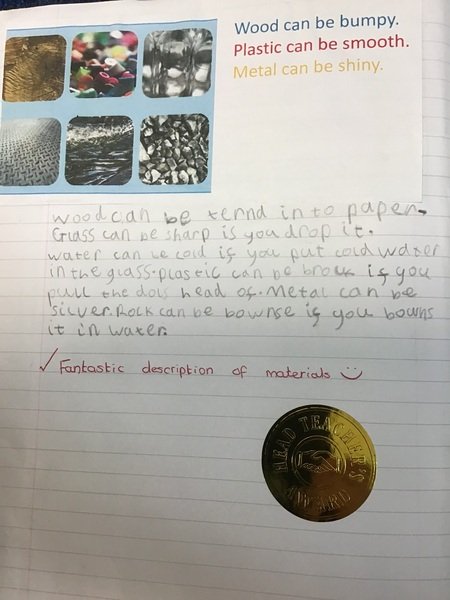 Wood can be bumpy.
Plastic can be smooth.
Metal can be shiny.
wood can be ternd in to paper.
Glass can be sharp if you drop it.
water can be cold if you put cold water
in the glass. plastic can be brouk if you
pull the dols head of. Metal can be
silver. Rock can be bownse if you bouns
it in water.
✓ Fantastic description of materials
HEAD TEACHER'S
AWARD